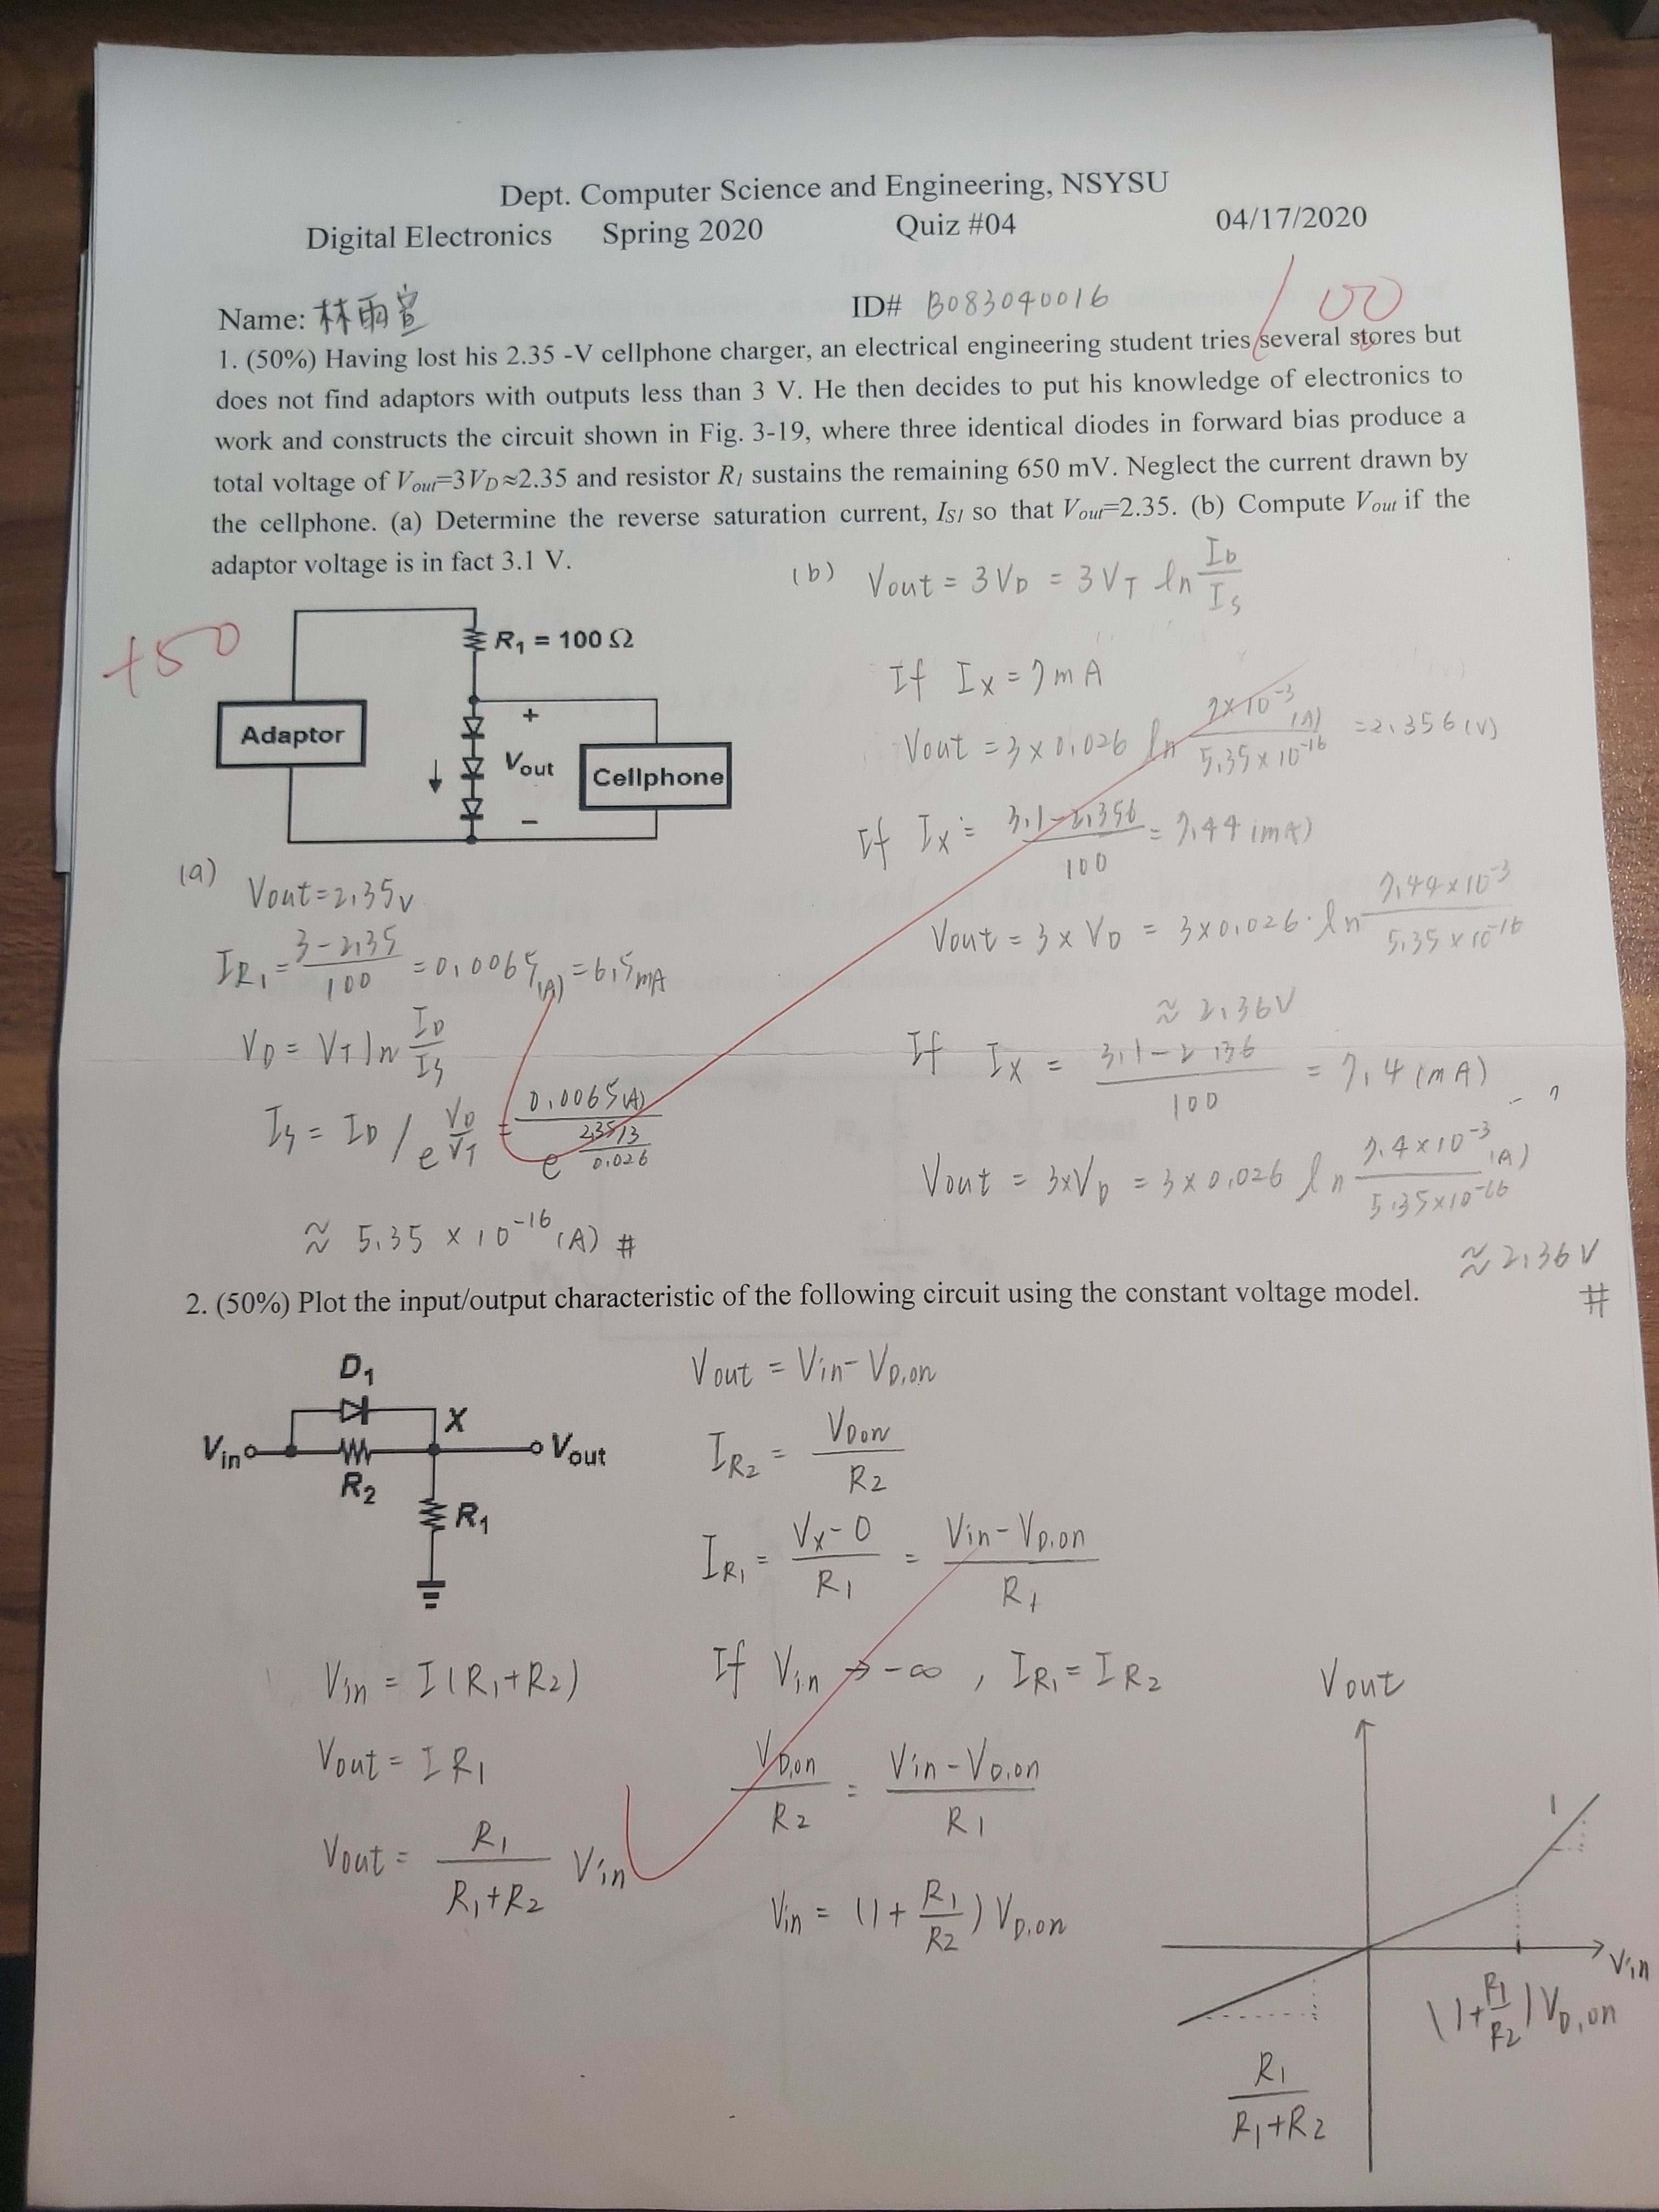 Dept. Computer Science and Engineering, NSYSU
Digital Electronics Spring 2020 Quiz #04 04/17/2020
Name: 林雨萱 ID# B083040016
100
1. (50%) Having lost his 2.35 -V cellphone charger, an electrical engineering student tries several stores but
does not find adaptors with outputs less than 3 V. He then decides to put his knowledge of electronics to
work and constructs the circuit shown in Fig. 3-19, where three identical diodes in forward bias produce a
total voltage of Vout=3VD≈2.35 and resistor R1 sustains the remaining 650 mV. Neglect the current drawn by
the cellphone. (a) Determine the reverse saturation current, IS1 so that Vout=2.35. (b) Compute Vout if the
adaptor voltage is in fact 3.1 V.
+50
R1 = 100 Ω
Adaptor
+
Vout
−
Cellphone
(a)
Vout=2.35V
IR1 = (3-2.35)/100 = 0.0065(A) = 6.5mA
VD = VT ln ID/IS
IS = ID / e^(VD/VT) = 0.0065(A) / e^((2.35/3)/0.026)
≈ 5.35 × 10^-16 (A) #
(b) Vout = 3VD = 3VT ln ID/IS
If IX = 7mA
Vout = 3×0.026 ln (7×10^-3 (A))/(5.35×10^-16) = 2.356(V)
If IX = (3.1-2.356)/100 = 7.44(mA)
Vout = 3×VD = 3×0.026·ln (7.44×10^-3)/(5.35×10^-16)
≈ 2.36V
If IX = (3.1-2.36)/100 = 7.4(mA)
Vout = 3×VD = 3×0.026 ln (7.4×10^-3 (A))/(5.35×10^-16)
≈ 2.36V
#
2. (50%) Plot the input/output characteristic of the following circuit using the constant voltage model.
D1
X
Vin
Vout
R2
R1
Vin = I(R1+R2)
Vout = IR1
Vout = R1/(R1+R2) Vin
Vout = Vin-VD,on
IR2 = VDon/R2
IR1 = (Vx-0)/R1 = (Vin-VD,on)/R1
If Vin → -∞ , IR1 = IR2
VD,on/R2 = (Vin-VD,on)/R1
Vin = (1+R1/R2)VD,on
Vout
1
Vin
(1+R1/R2)VD,on
R1/(R1+R2)